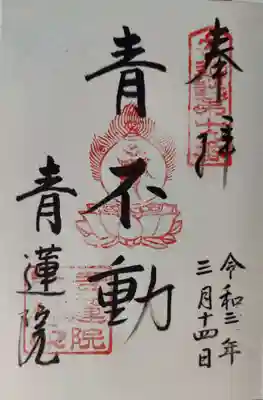 奉拝
令和三年
三月十四日
青不動
青蓮院